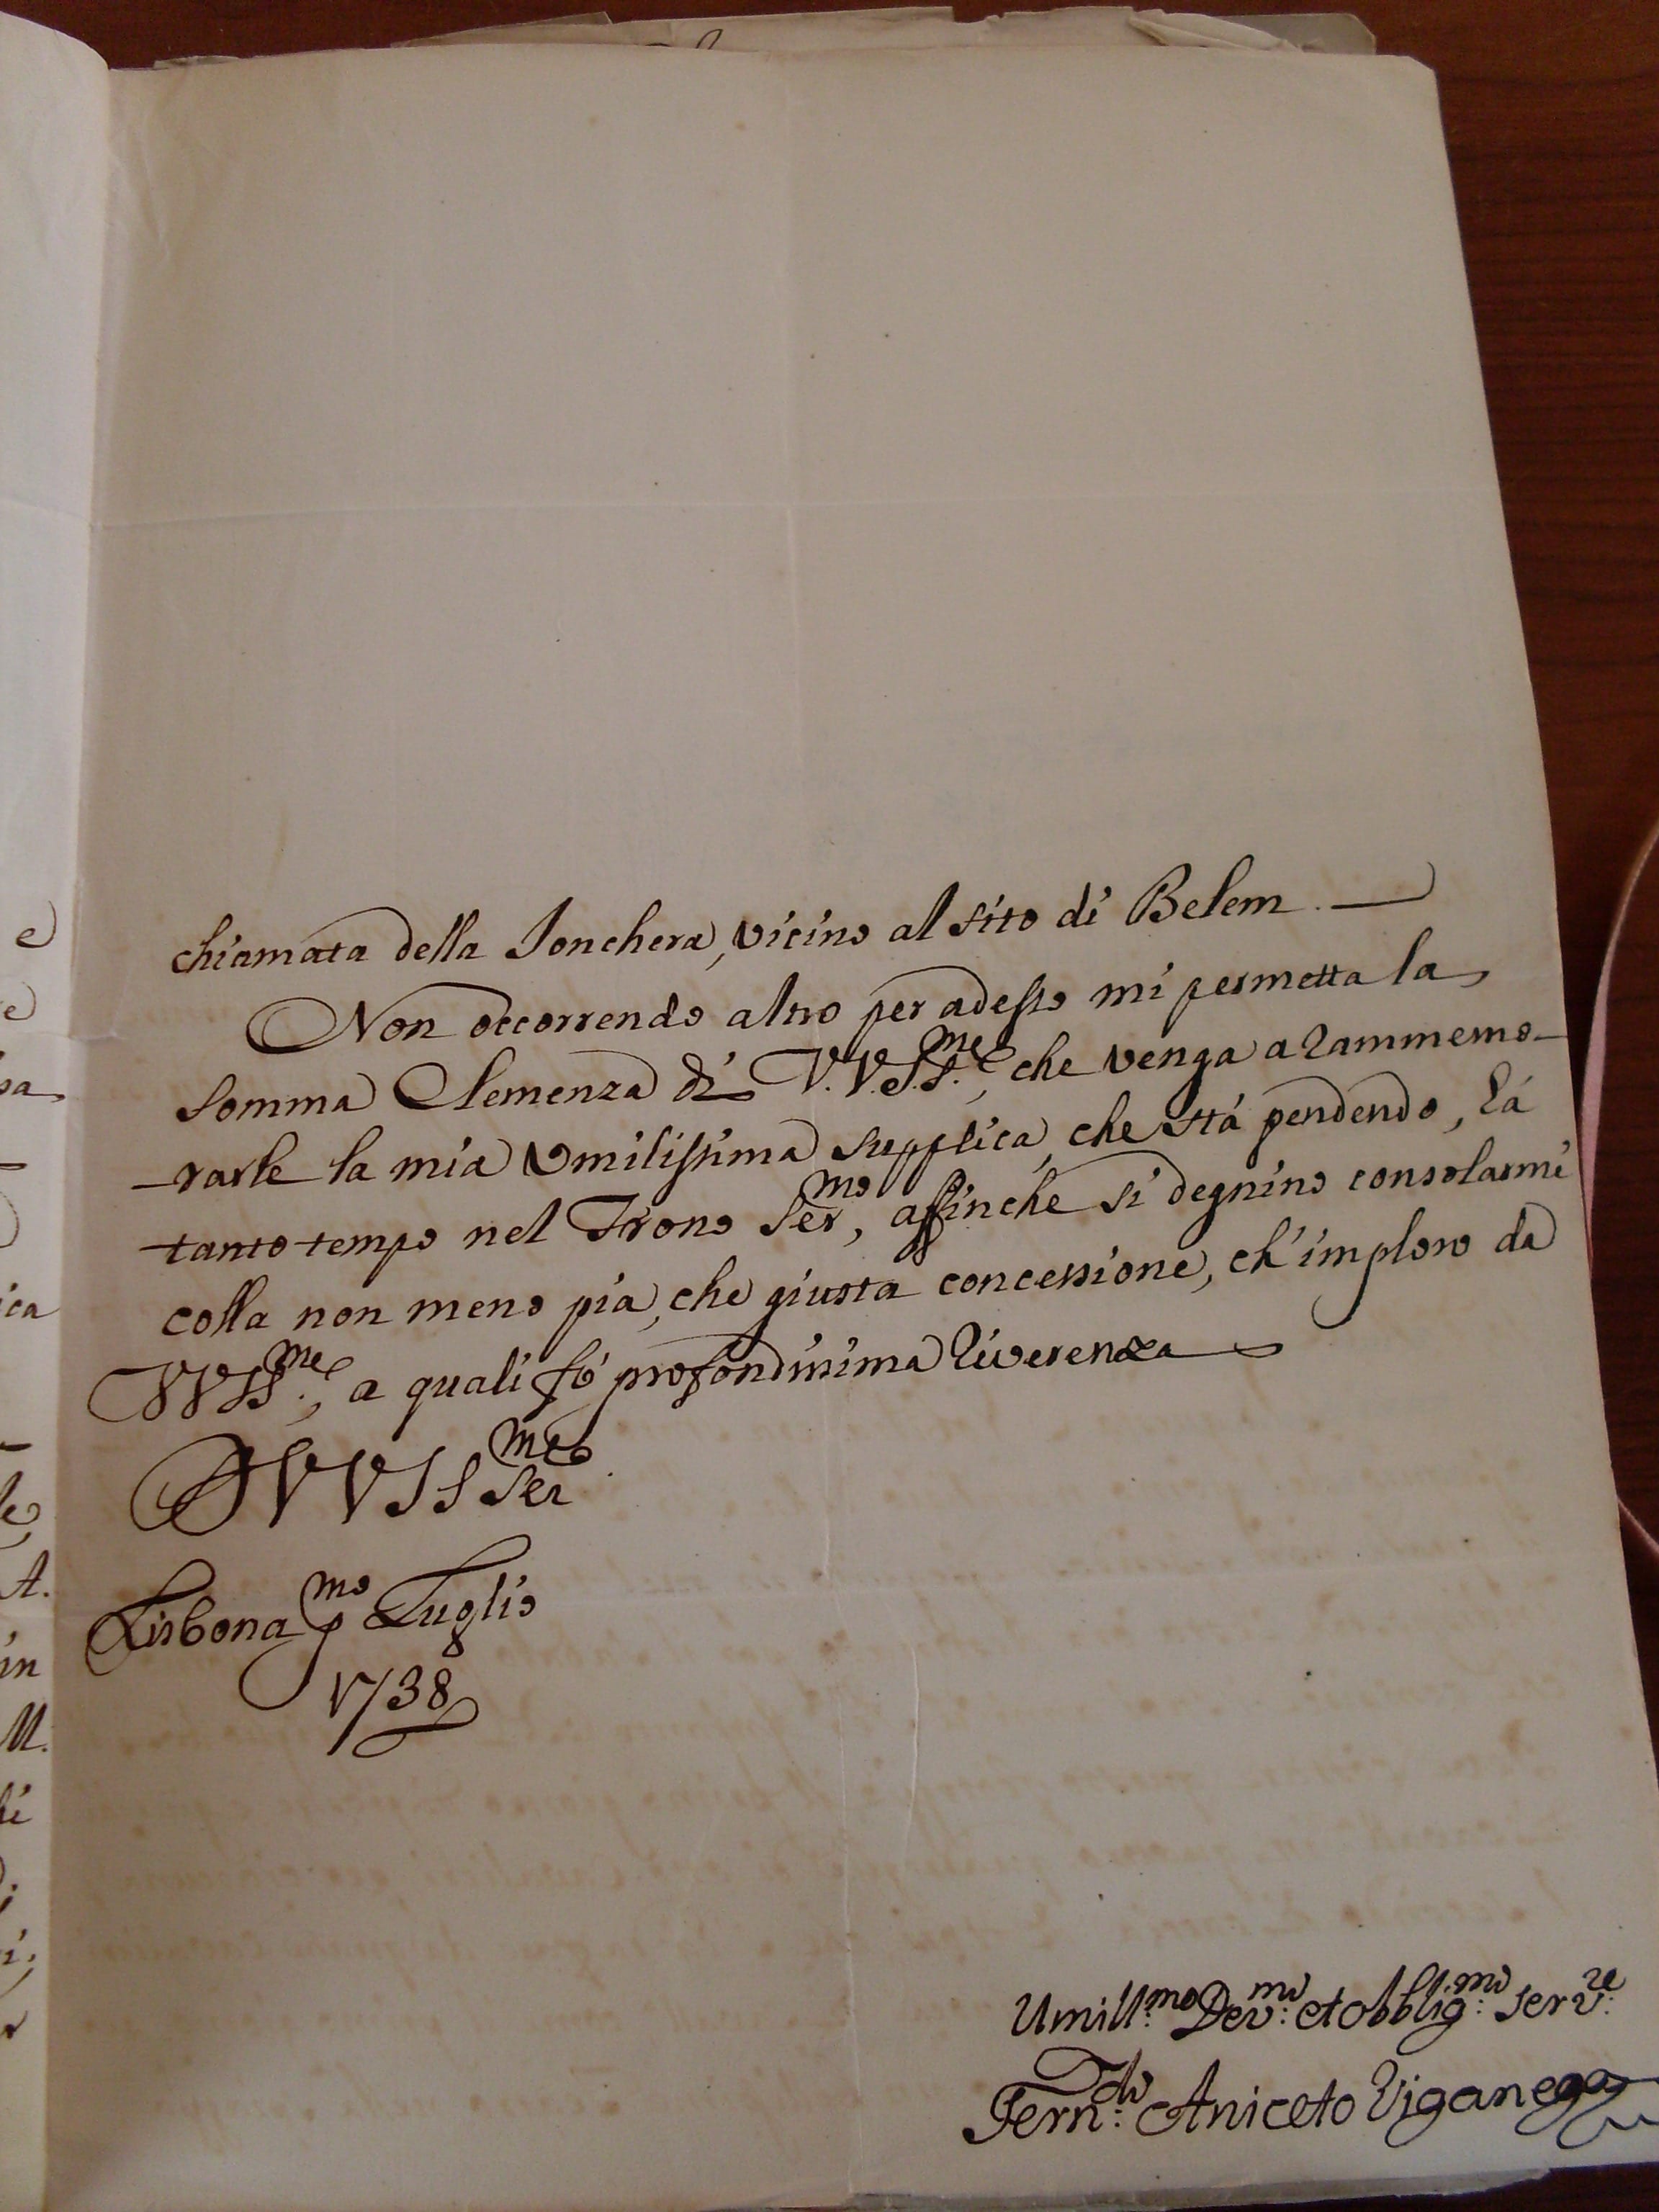 chiamata della Jonchera, vicino al sito di Belem. —
Non occorrendo altro per adesso mi permetta la
somma Clemenza di V.V.S.S.me, che venga a rammemo-
-rarle la mia umilissima supplica, che stá pendendo, lá
tanto tempo nel Trono Ser.mo, affinche si degnino consolarmi
colla non meno pia, che giusta concessione, ch'imploro da
VVSS.me, a quali fó profondissima riverenza
VVSS Ser.me
Lisbona p.mo Luglio
1738
Umill.mo Dev.mo et obblig.mo serv.re
Fern.do Aniceto Viganego